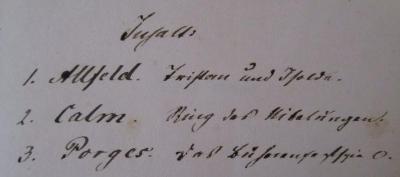 Inhalt:
1. Allfeld. Tristan und Isolde.
2. Calm. Ring des Nibelungen.
3. Porges. Das Bühnenfestspiel